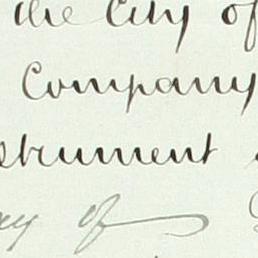 the City of
Company
strument
ay of